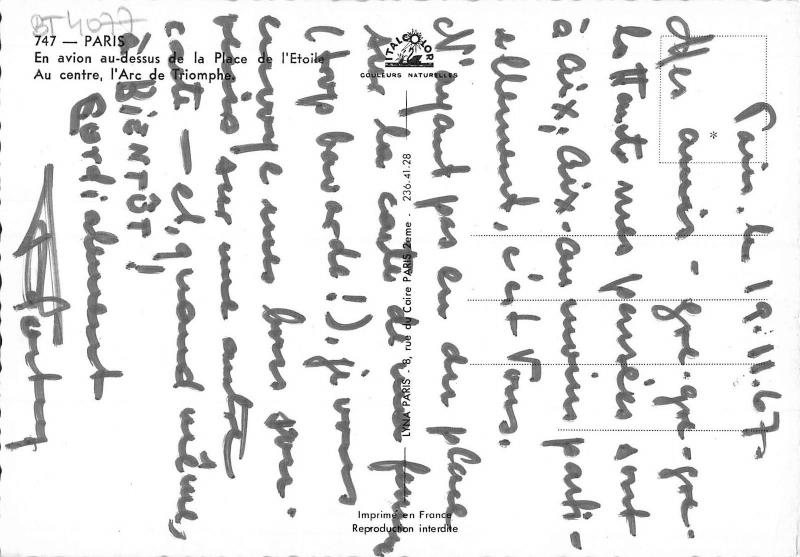 BT 4077
747 — PARIS
En avion au-dessus de la Place de l'Etoile
Au centre, l'Arc de Triomphe.
ITALCOLOR
COULEURS NATURELLES
LYNA PARIS - 8, rue du Caire PARIS 2eme - 236-41-28
Imprimé en France
Reproduction interdite
Paris, le 19.11.67.
amis - grr-grr-grr-
mes pensées sont
à Aix; Aix-au moins parti-
ellement, c'est Vous.
N'ayant pas eu du place
sur la carte de ma femme
(trop bavarde!), je vous
envoye mes bons sou-
venirs sur une autre
carte - et, quand même,
à BIENTÔT!
Cordialement